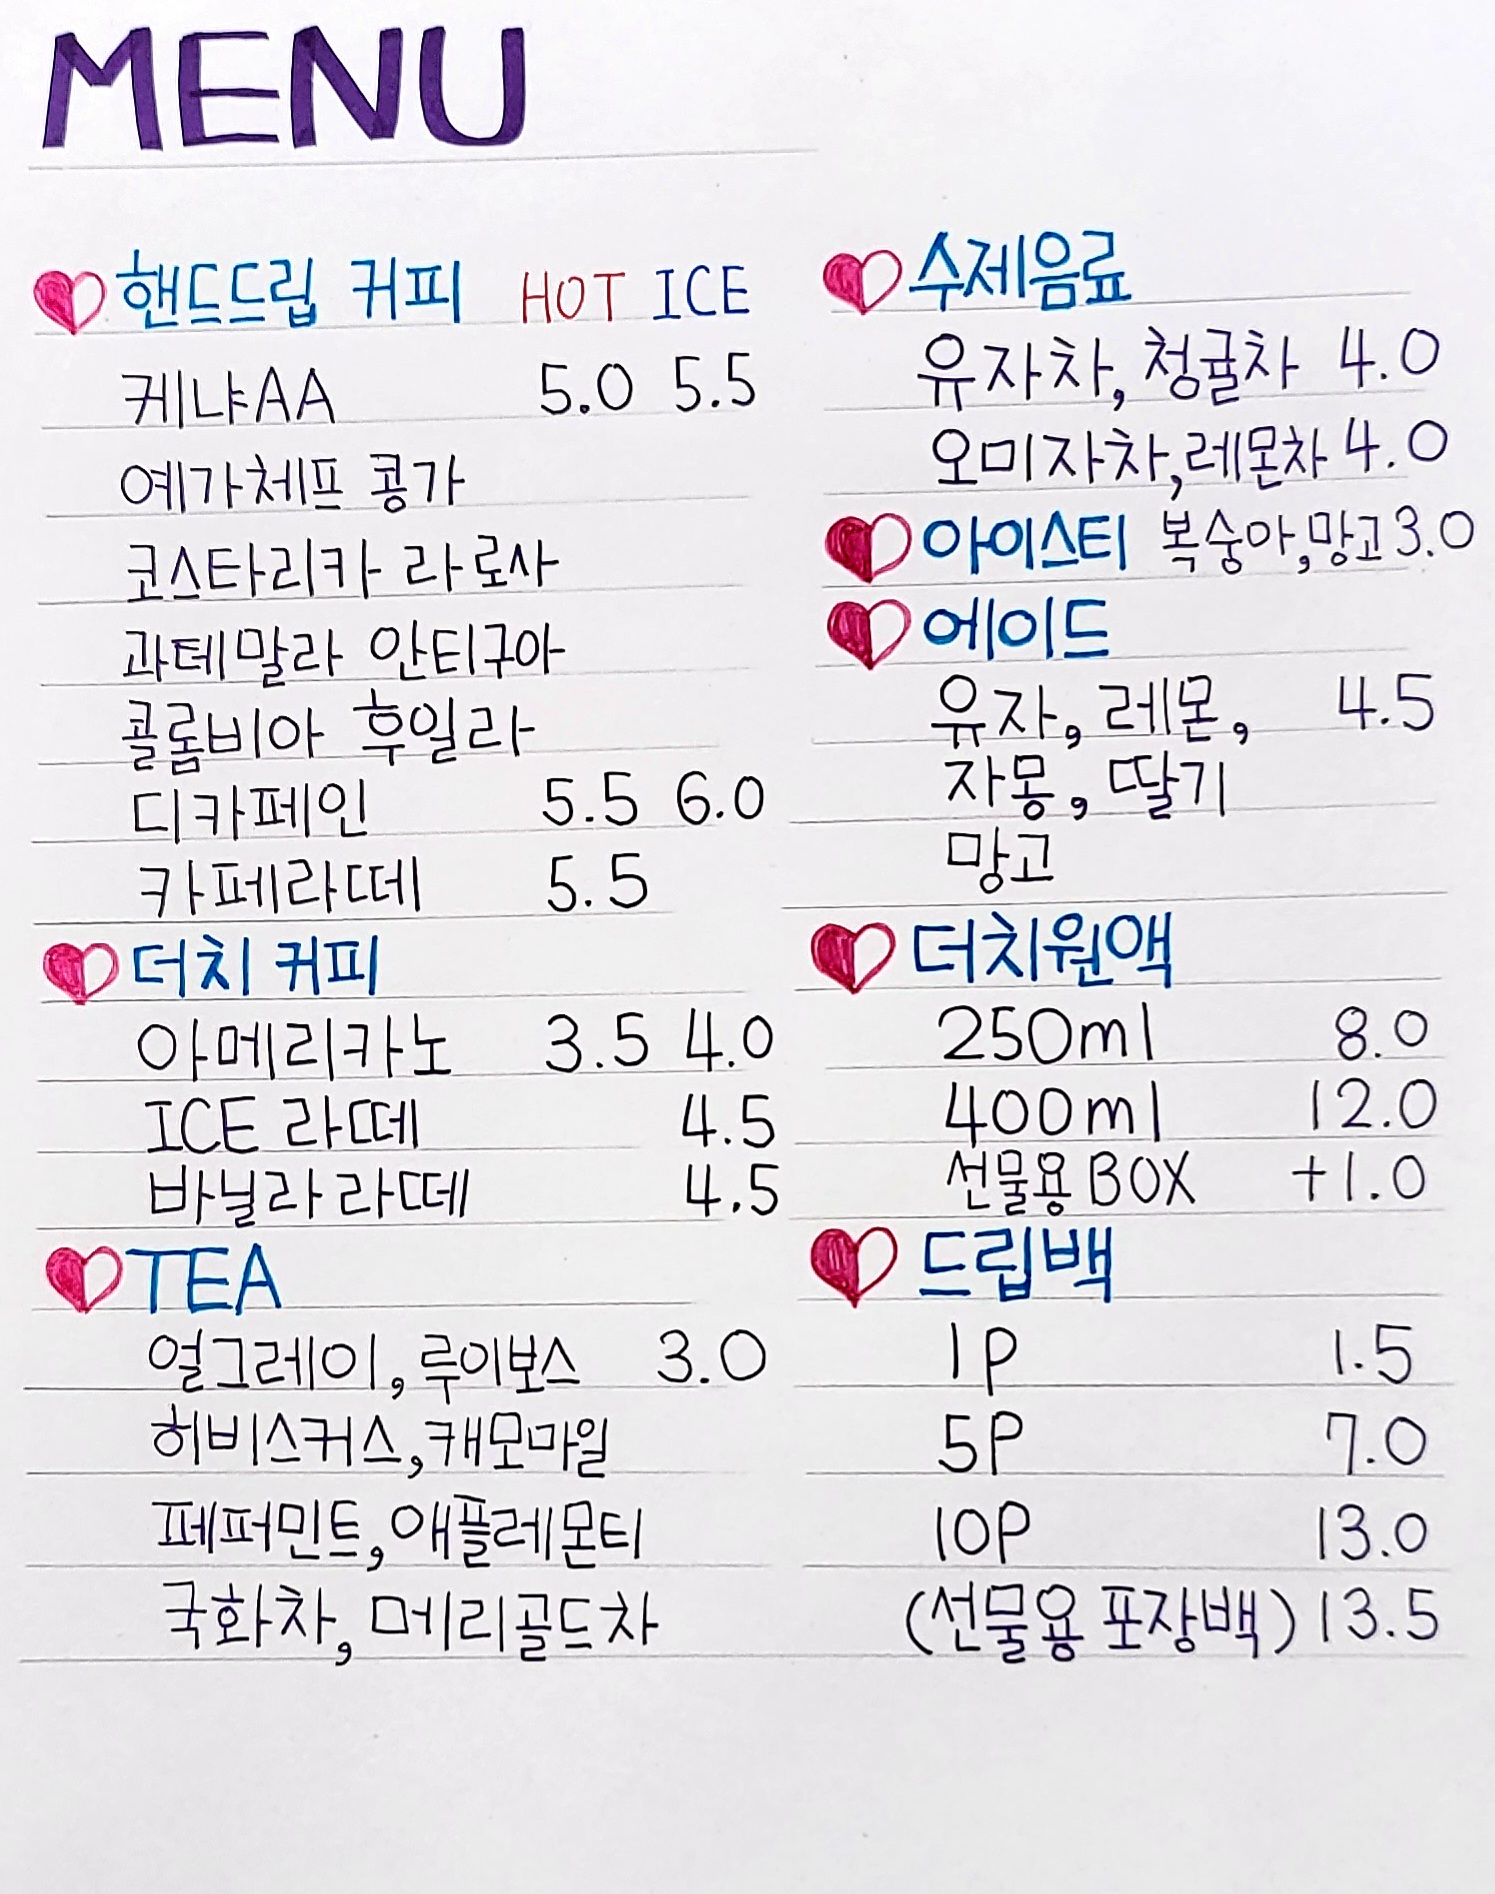 MENU
핸드드립 커피 HOT ICE
케냐AA 5.0 5.5
예가체프 콩가
코스타리카 라로사
과테말라 안티구아
콜롬비아 후일라
디카페인 5.5 6.0
카페라떼 5.5
더치 커피
아메리카노 3.5 4.0
ICE 라떼 4.5
바닐라라떼 4.5
TEA
얼그레이, 루이보스 3.0
히비스커스, 캐모마일
페퍼민트, 애플레몬티
국화차, 메리골드차
수제음료
유자차, 청귤차 4.0
오미자차, 레몬차 4.0
아이스티 복숭아, 망고 3.0
에이드
유자, 레몬, 4.5
자몽, 딸기
망고
더치원액
250ml 8.0
400ml 12.0
선물용 BOX +1.0
드립백
1P 1.5
5P 7.0
10P 13.0
(선물용 포장백) 13.5